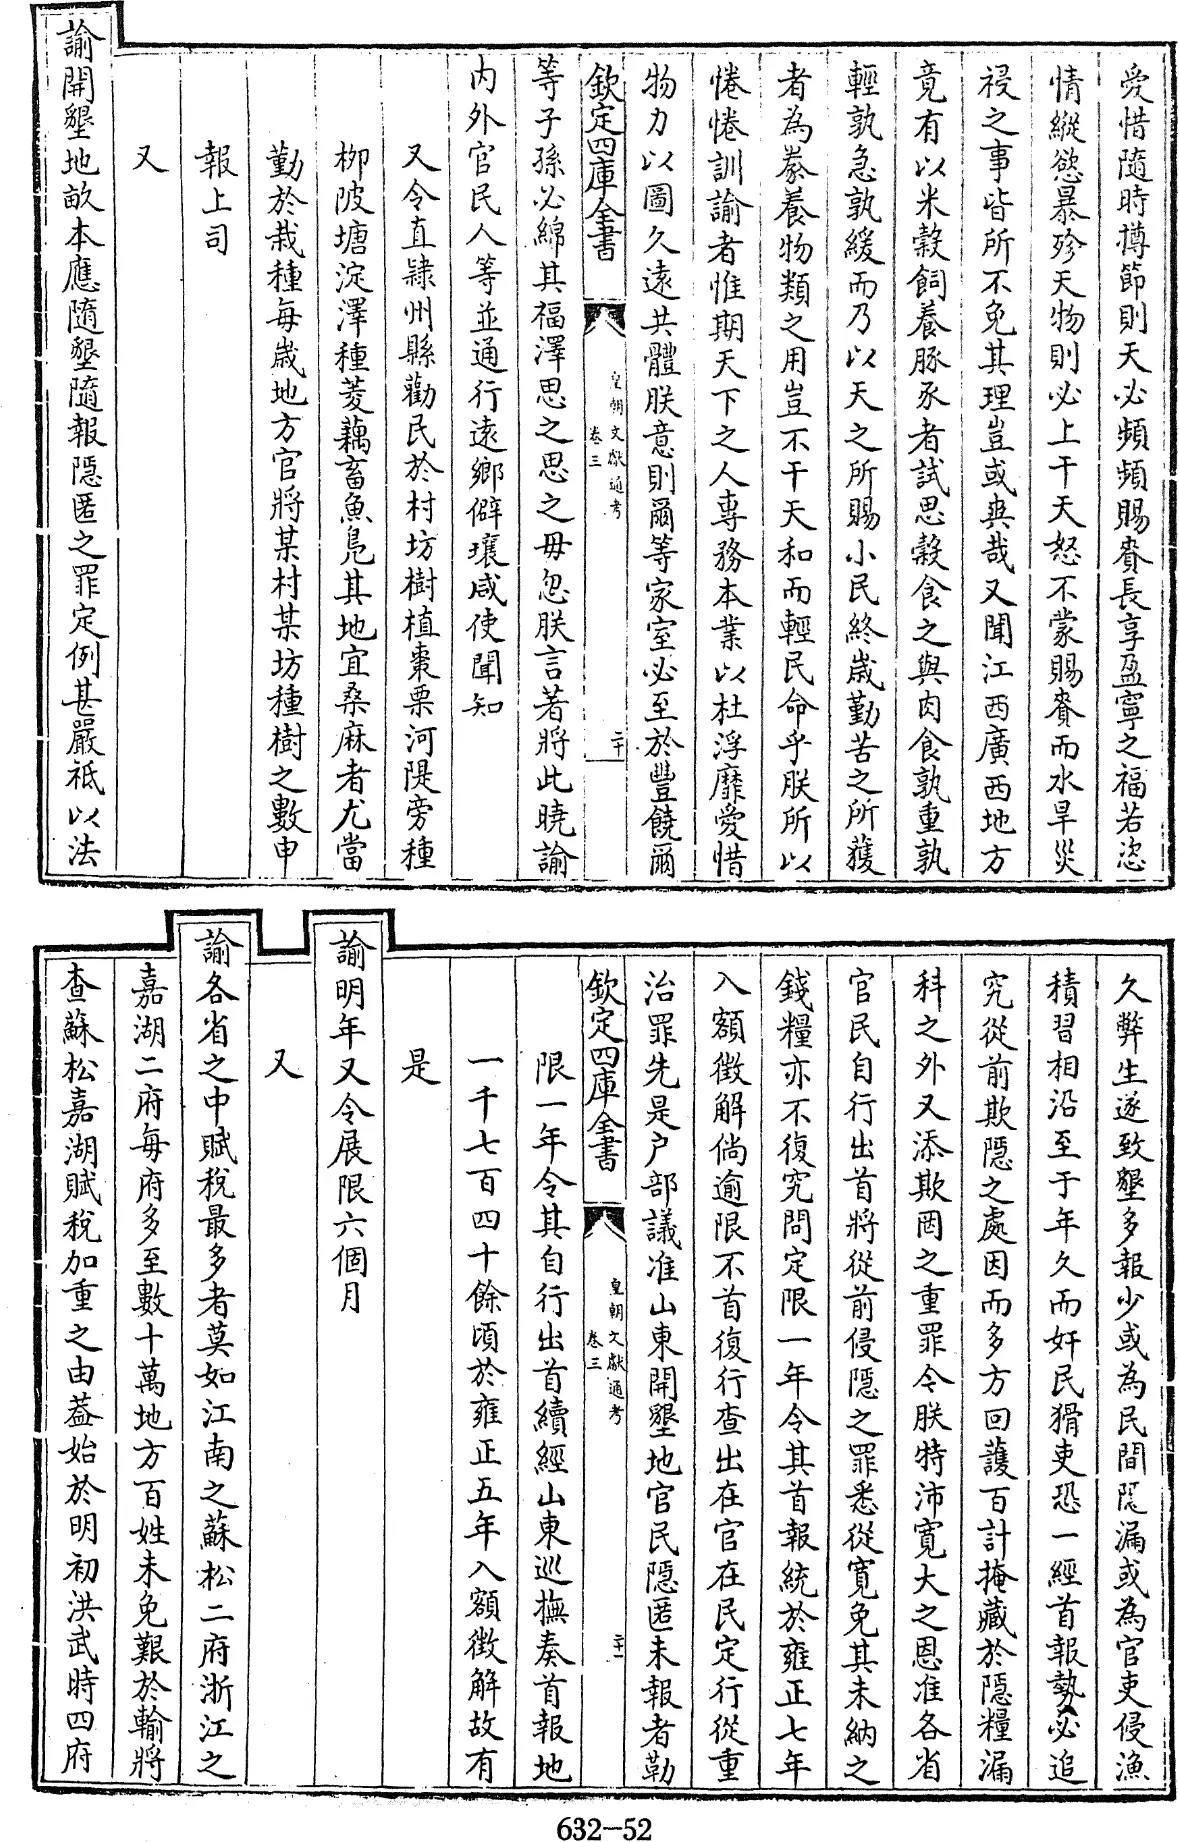 愛惜隨時撙節則天必頻頻賜賚長享盈寧之福若恣
情縱慾暴殄天物則必上干天怒不蒙賜賚而水旱災
祲之事皆所不免其理豈或爽哉又聞江西廣西地方
竟有以米穀飼養豚豕者試思穀食之與肉食孰重孰
輕孰急孰緩而乃以天之所賜小民終歲勤苦之所獲
者為豢養物類之用豈不干天和而輕民命乎朕所以
惓惓訓諭者惟期天下之人專務本業以杜浮靡愛惜
物力以圖久遠共體朕意則爾等家室必至於豐饒爾
欽定四庫全書
皇朝文獻通考
卷三
二十
等子孫必綿其福澤思之思之毋忽朕言著將此曉諭
内外官民人等並通行遠鄉僻壤咸使聞知
又令直隸州縣勸民於村坊樹植棗栗河隄旁種
柳陂塘淀澤種菱藕畜魚鳧其地宜桑麻者尤當
勤於栽種每歲地方官將某村某坊種樹之數申
報上司
又
諭開墾地畝本應隨墾隨報隱匿之罪定例甚嚴祗以法
久弊生遂致墾多報少或為民間隱漏或為官吏侵漁
積習相沿至于年久而奸民猾吏恐一經首報勢必追
究從前欺隱之處因而多方回護百計掩藏於隱糧漏
科之外又添欺罔之重罪令朕特沛寬大之恩准各省
官民自行出首將從前侵隱之罪悉從寬免其未納之
錢糧亦不復究問定限一年令其首報統於雍正七年
入額徵解倘逾限不首復行查出在官在民定行從重
治罪先是户部議准山東開墾地官民隱匿未報者勒
欽定四庫全書
皇朝文獻通考
卷三
二十一
限一年令其自行出首續經山東巡撫奏首報地
一千七百四十餘頃於雍正五年入額徵解故有
是
諭明年又令展限六個月
又
諭各省之中賦稅最多者莫如江南之蘇松二府浙江之
嘉湖二府每府多至數十萬地方百姓未免艱於輸將
查蘇松嘉湖賦稅加重之由蓋始於明初洪武時四府
632-52